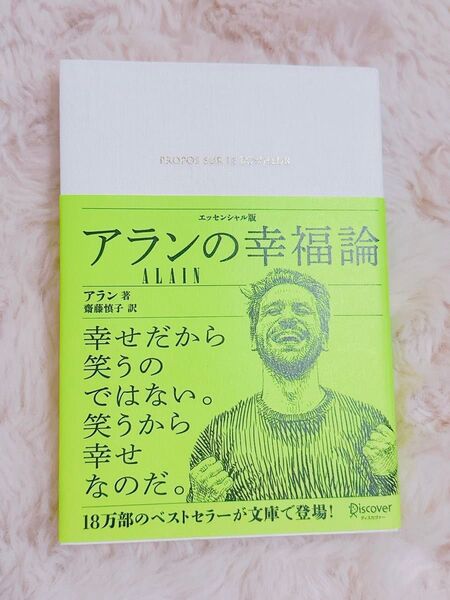 PROPOS SUR LE BONHEUR
エッセンシャル版
アランの幸福論
ALAIN
アラン 著
齋藤慎子 訳
幸せだから
笑うの
ではない。
笑うから
幸せ
なのだ。
18万部のベストセラーが文庫で登場!
Discover
ディスカヴァー